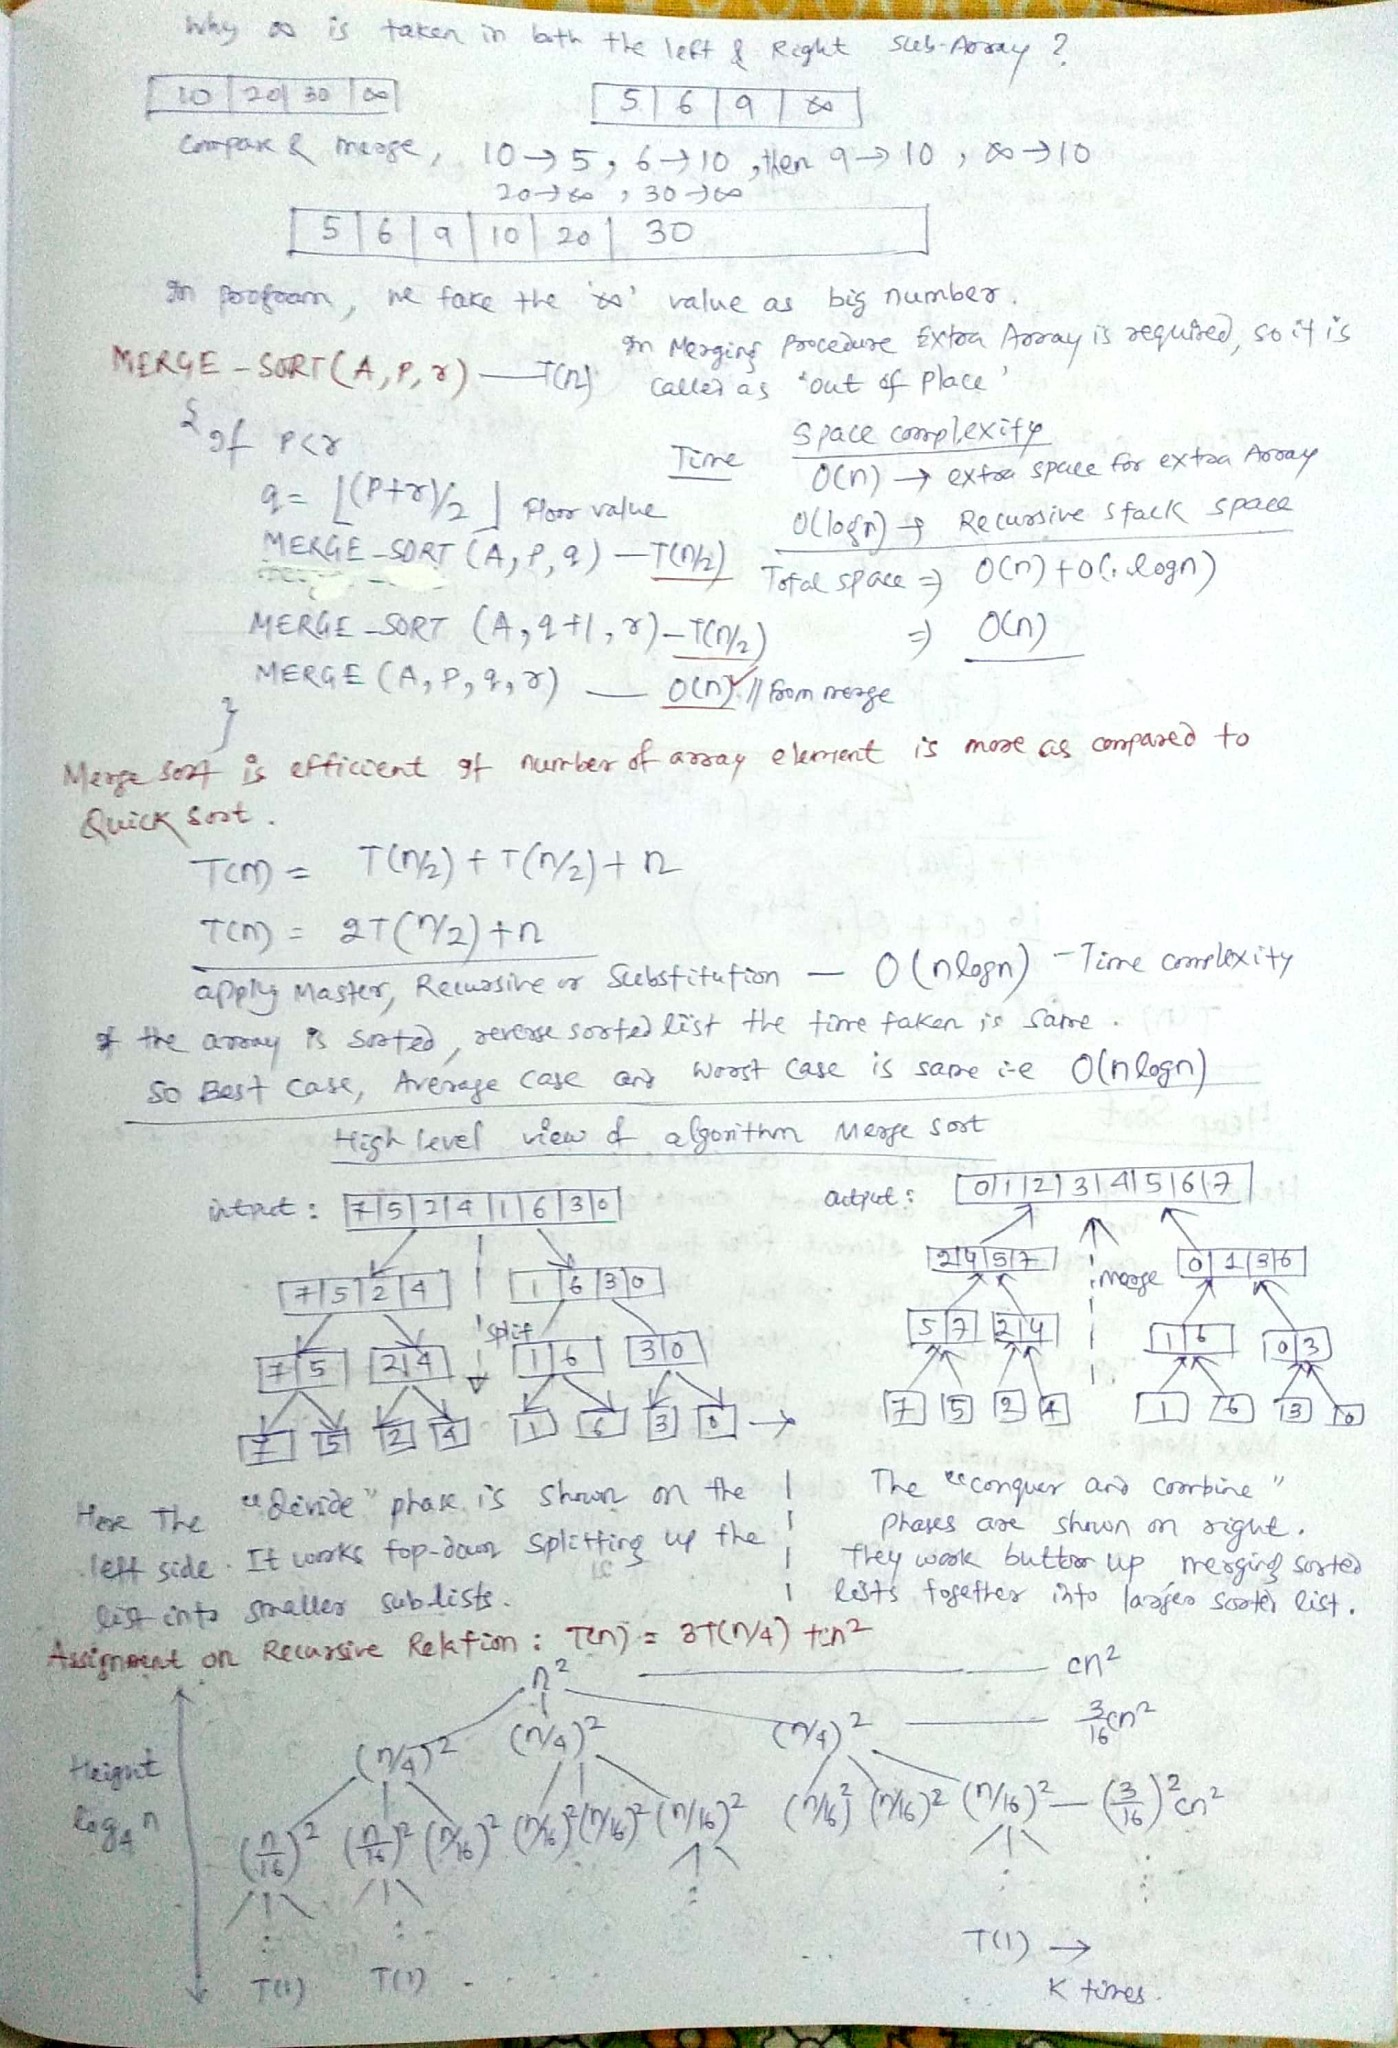 Why ∞ is taken in both the left & Right Sub-Array ?
10 | 20 | 30 | ∞    5 | 6 | 9 | ∞
Compare & merge, 10→5, 6→10, then 9→10, ∞→10
20→∞, 30→∞
5 | 6 | 9 | 10 | 20 | 30
In program, we take the '∞' value as big number.
In Merging Procedure Extra Array is required, so it is
called as 'out of place'
MERGE-SORT(A, P, r) — T(n)
{ If P<r
q = ⌊(P+r)/2⌋ Floor value
MERGE-SORT (A, P, q) — T(n/2)
MERGE-SORT (A, q+1, r) — T(n/2)
MERGE (A, P, q, r) — O(n) ✓ // from merge
}
Time Space complexity
O(n) → extra space for extra Array
O(logn) → Recursive stack space
Total space ⇒ O(n) + O(logn)
⇒ O(n)
Merge sort is efficient If number of array element is more as compared to
Quick Sort.
T(n) = T(n/2) + T(n/2) + n
T(n) = 2T(n/2) + n
apply Master, Recursive or Substitution — O(nlogn) - Time complexity
If the array is sorted, reverse sorted list the time taken is same.
So Best case, Average case and worst case is same i-e O(nlogn)
High level view of algorithm Merge sort
intput : 7 | 5 | 2 | 4 | 1 | 6 | 3 | 0    output : 0 | 1 | 2 | 3 | 4 | 5 | 6 | 7
7 | 5 | 2 | 4    1 | 6 | 3 | 0    2 | 4 | 5 | 7    merge    0 | 1 | 3 | 6
split
7 | 5    2 | 4    1 | 6    3 | 0    5 | 7    2 | 4    1 | 6    0 | 3
7 5 2 4 1 6 3 0 → 7 5 2 4 1 6 3 0
Here The "devide" phase is shown on the
left side. It works top-down splitting up the
list into smaller sub-lists.
The "conquer and combine"
phases are shown on right.
They work buttom up merging sorted
lists together into larger sorted list.
Assignment on Recursive Relation : T(n) = 3T(n/4) + cn²
n² — cn²
(n/4)² (n/4)² (n/4)² — 3/16 cn²
Height
log₄n
(n/16)² (n/16)² (n/16)² (n/16)² (n/16)² (n/16)² (n/16)² (n/16)² (n/16)² — (3/16)² cn²
T(1) →
T(1) T(1) . . . . .
K times.